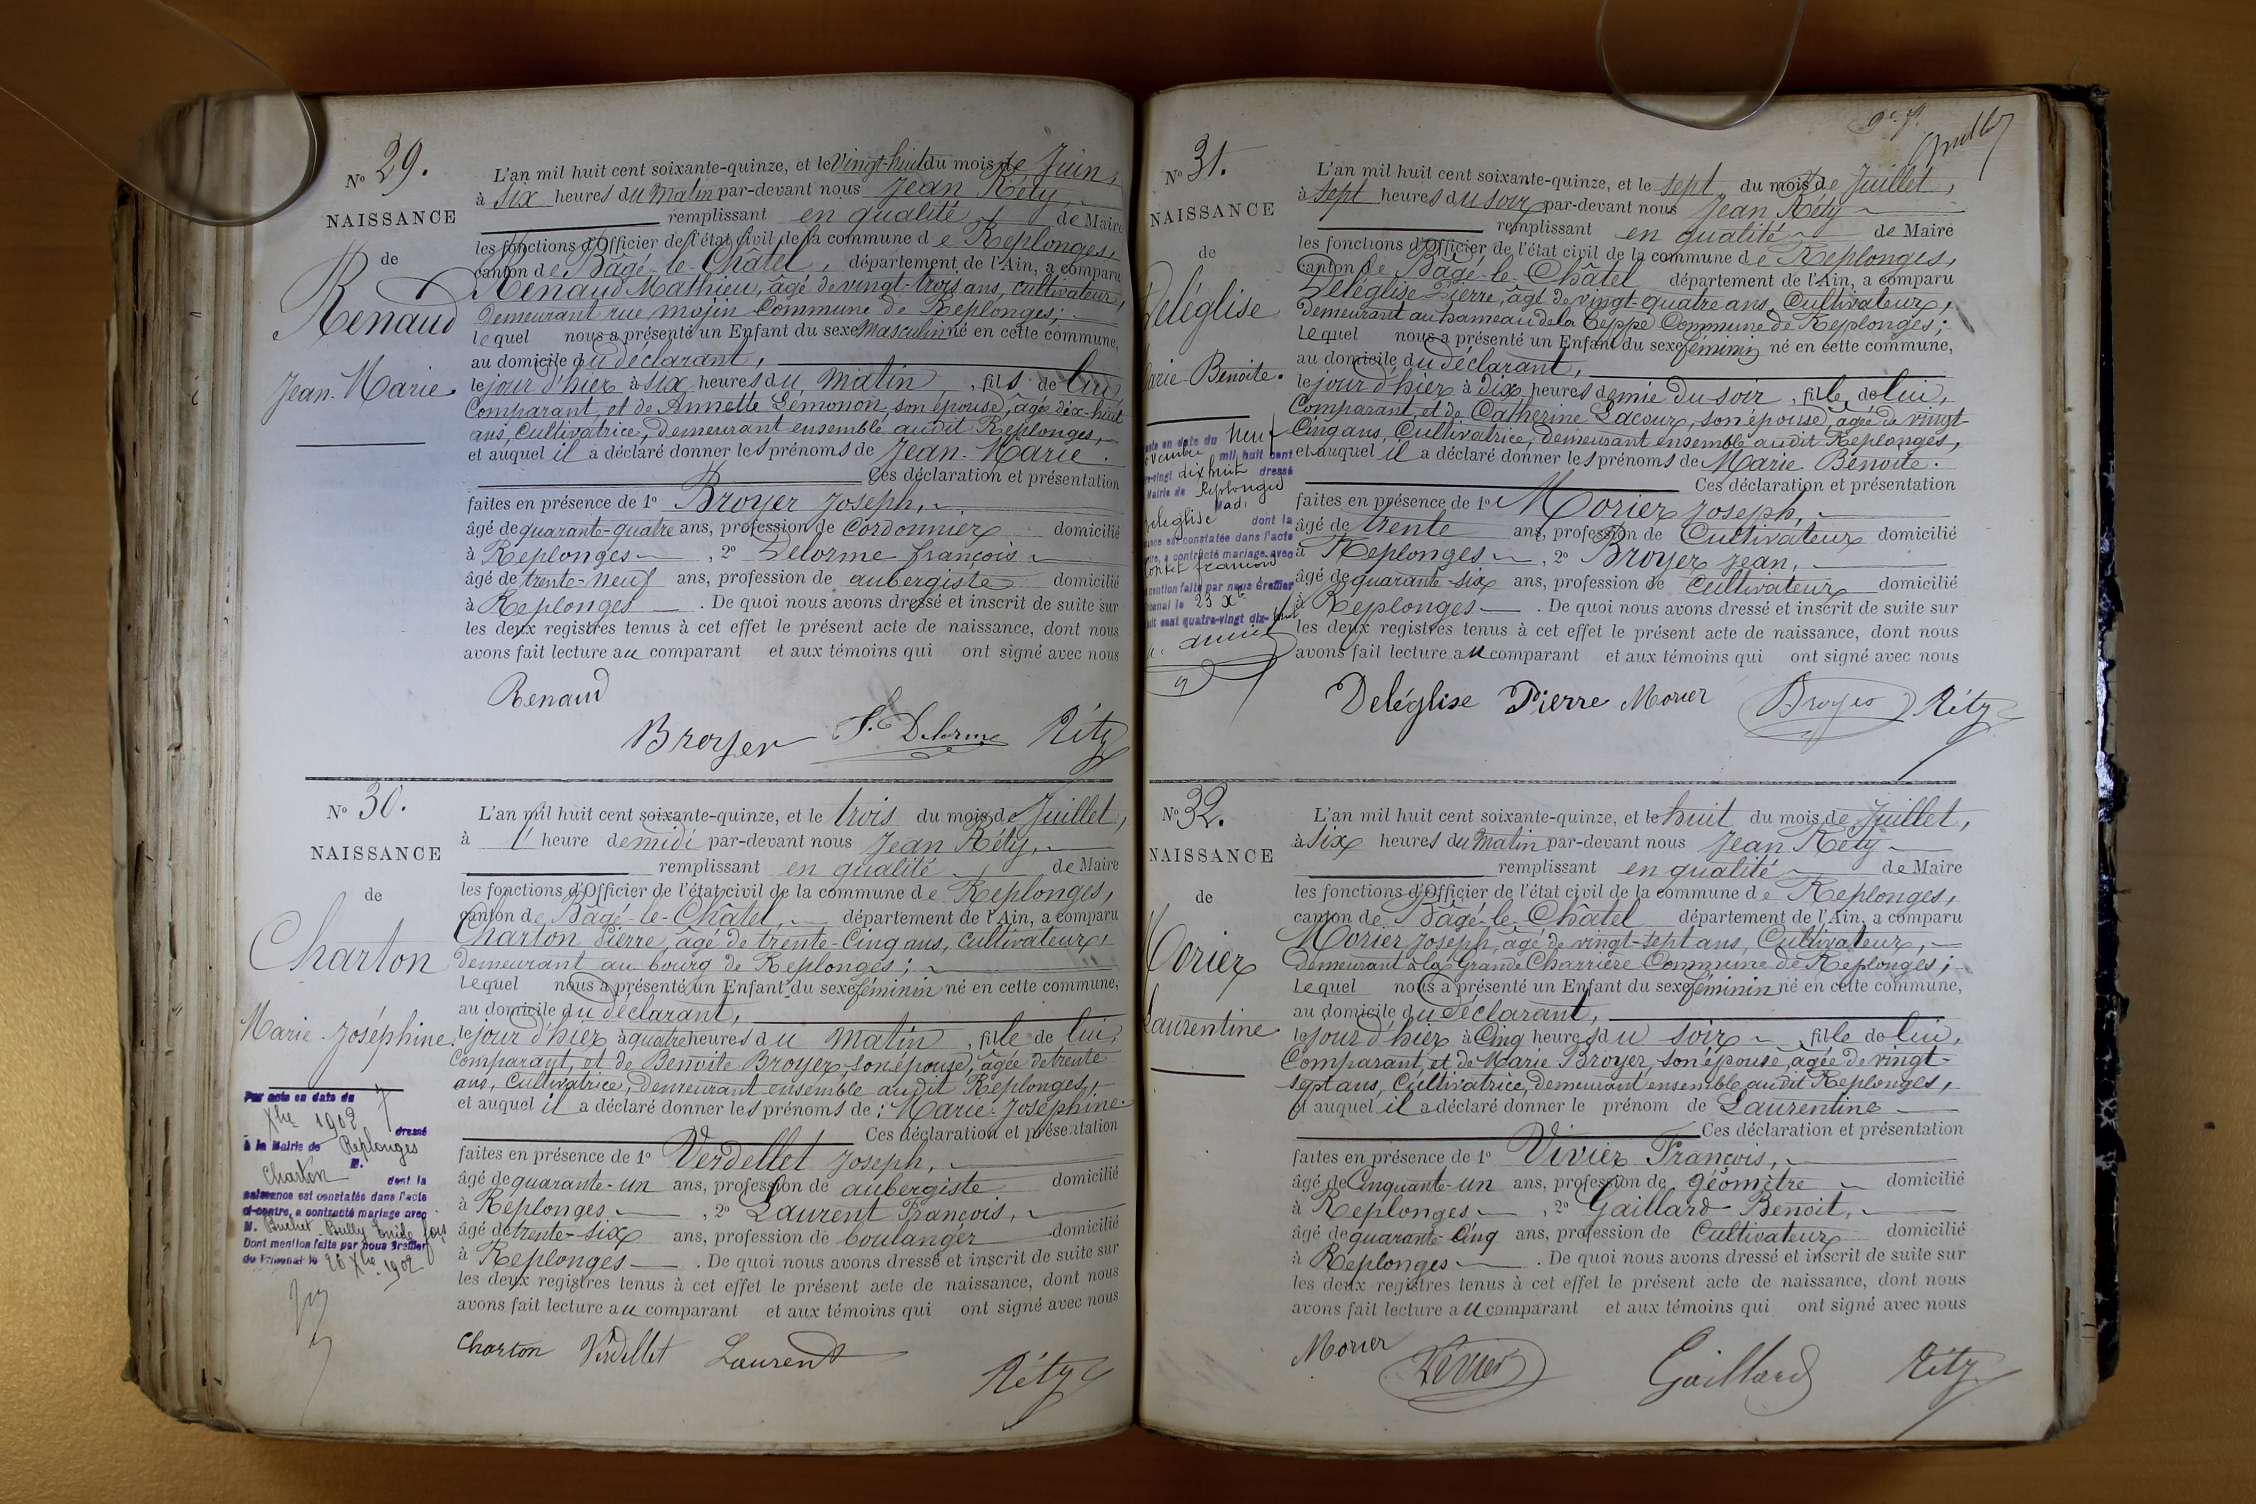 N° 29.
NAISSANCE
de
Renaud
Jean-Marie.
L'an mil huit cent soixante-quinze, et le Vingt-huit du mois de Juin,
à six heures du matin par-devant nous Jean Réty,
remplissant en qualité de Maire
les fonctions d'Officier de l'état civil de la commune de Replonges,
canton de Bâgé-le-Châtel, département de l'Ain, a comparu
Renaud Mathieu, âgé de vingt-trois ans, cultivateur,
demeurant rue mojin Commune de Replonges;
lequel nous a présenté un Enfant du sexe masculin né en cette commune,
au domicile du déclarant,
le jour d'hier à six heures du matin, fils de lui,
Comparant, et de Annette Lémonon, son épouse, âgée dix-huit
ans, Cultivatrice, demeurant ensemble audit Replonges,
et auquel il a déclaré donner les prénoms de Jean-Marie.
Ces déclaration et présentation
faites en présence de 1° Broyer Joseph,
âgé de quarante-quatre ans, profession de Cordonnier domicilié
à Replonges, 2° Delorme François
âgé de trente-neuf ans, profession de aubergiste domicilié
à Replonges. De quoi nous avons dressé et inscrit de suite sur
les deux registres tenus à cet effet le présent acte de naissance, dont nous
avons fait lecture au comparant et aux témoins qui ont signé avec nous
Renaud
Broyer F. Delorme Réty
N° 30.
NAISSANCE
de
Charton
Marie-Joséphine.
Par acte en date du 7
Xbre 1902
dressé
à la Mairie de Replonges
M.
Charton dont la
naissance est constatée dans l'acte
ci-contre, a contracté mariage avec
M. Buchet Emile
Dont mention faite par nous Greffier
du Tribunal le 26 Xbre 1902
L'an mil huit cent soixante-quinze, et le trois du mois de Juillet,
à 1 heure de midi par-devant nous Jean Réty,
remplissant en qualité de Maire
les fonctions d'Officier de l'état civil de la commune de Replonges,
canton de Bâgé-le-Châtel, département de l'Ain, a comparu
Charton Pierre, âgé de trente-Cinq ans, cultivateur,
demeurant au bourg de Replonges;
Lequel nous a présenté un Enfant du sexe féminin né en cette commune,
au domicile du déclarant,
le jour d'hier à quatre heures du matin, fille de lui,
Comparant, et de Benoite Broyer, son épouse, âgée de trente
ans, Cultivatrice, demeurant ensemble audit Replonges,
et auquel il a déclaré donner les prénoms de: Marie-Joséphine.
Ces déclaration et présentation
faites en présence de 1° Verdellet Joseph,
âgé de quarante-un ans, profession de aubergiste domicilié
à Replonges, 2° Laurent François,
âgé de trente-six ans, profession de boulanger domicilié
à Replonges. De quoi nous avons dressé et inscrit de suite sur
les deux registres tenus à cet effet le présent acte de naissance, dont nous
avons fait lecture au comparant et aux témoins qui ont signé avec nous
Charton Verdellet Laurent
Réty
N° 31.
NAISSANCE
de
Deléglise
Marie-Benoite.
acte en date du Neuf
Novembre mil huit cent
vingt dix huit dressé
Mairie de Replonges
Mad.
Deléglise dont la
est constatée dans l'acte
a contracté mariage avec
François
mention faite par nous Greffier
le 23 Xbre
huit cent quatre-vingt dix-huit
L'an mil huit cent soixante-quinze, et le sept du mois de Juillet,
à sept heures du soir par-devant nous Jean Réty
remplissant en qualité de Maire
les fonctions d'Officier de l'état civil de la commune de Replonges,
canton de Bâgé-le-Châtel département de l'Ain, a comparu
Deléglise Pierre, âgé de vingt-quatre ans, Cultivateur,
demeurant au hameau de la Ceppe Commune de Replonges;
Lequel nous a présenté un Enfant du sexe féminin né en cette commune,
au domicile du déclarant,
le jour d'hier à dix heures demie du soir, fille de lui,
Comparant, et de Catherine Lacour, son épouse, âgée de vingt-
Cinq ans, Cultivatrice, demeurant ensemble audit Replonges,
et auquel il a déclaré donner les prénoms de Marie Benoite.
Ces déclaration et présentation
faites en présence de 1° Morier Joseph,
âgé de trente ans, profession de Cultivateur domicilié
à Replonges, 2° Broyer Jean,
âgé de quarante-six ans, profession de Cultivateur domicilié
à Replonges. De quoi nous avons dressé et inscrit de suite sur
les deux registres tenus à cet effet le présent acte de naissance, dont nous
avons fait lecture au comparant et aux témoins qui ont signé avec nous
Deléglise Pierre Morier Broyer Réty
N° 32.
NAISSANCE
de
Morier
Laurentine
L'an mil huit cent soixante-quinze, et le huit du mois de Juillet,
à six heures du matin par-devant nous Jean Réty
remplissant en qualité de Maire
les fonctions d'Officier de l'état civil de la commune de Replonges,
canton de Bâgé-le-Châtel département de l'Ain, a comparu
Morier Joseph, âgé de vingt-sept ans, Cultivateur,
demeurant à la Grande Charrière Commune de Replonges;
Lequel nous a présenté un Enfant du sexe féminin né en cette commune,
au domicile du déclarant,
le jour d'hier à Cinq heures du soir, fille de lui,
Comparant, et de Marie Broyer, son épouse, âgée de vingt-
sept ans, Cultivatrice, demeurant ensemble audit Replonges,
et auquel il a déclaré donner le prénom de Laurentine
Ces déclaration et présentation
faites en présence de 1° Vivier François,
âgé de Cinquante-un ans, profession de géomètre domicilié
à Replonges, 2° Gaillard Benoit,
âgé de quarante-Cinq ans, profession de Cultivateur domicilié
à Replonges. De quoi nous avons dressé et inscrit de suite sur
les deux registres tenus à cet effet le présent acte de naissance, dont nous
avons fait lecture au comparant et aux témoins qui ont signé avec nous
Morier Vivier Gaillard Réty